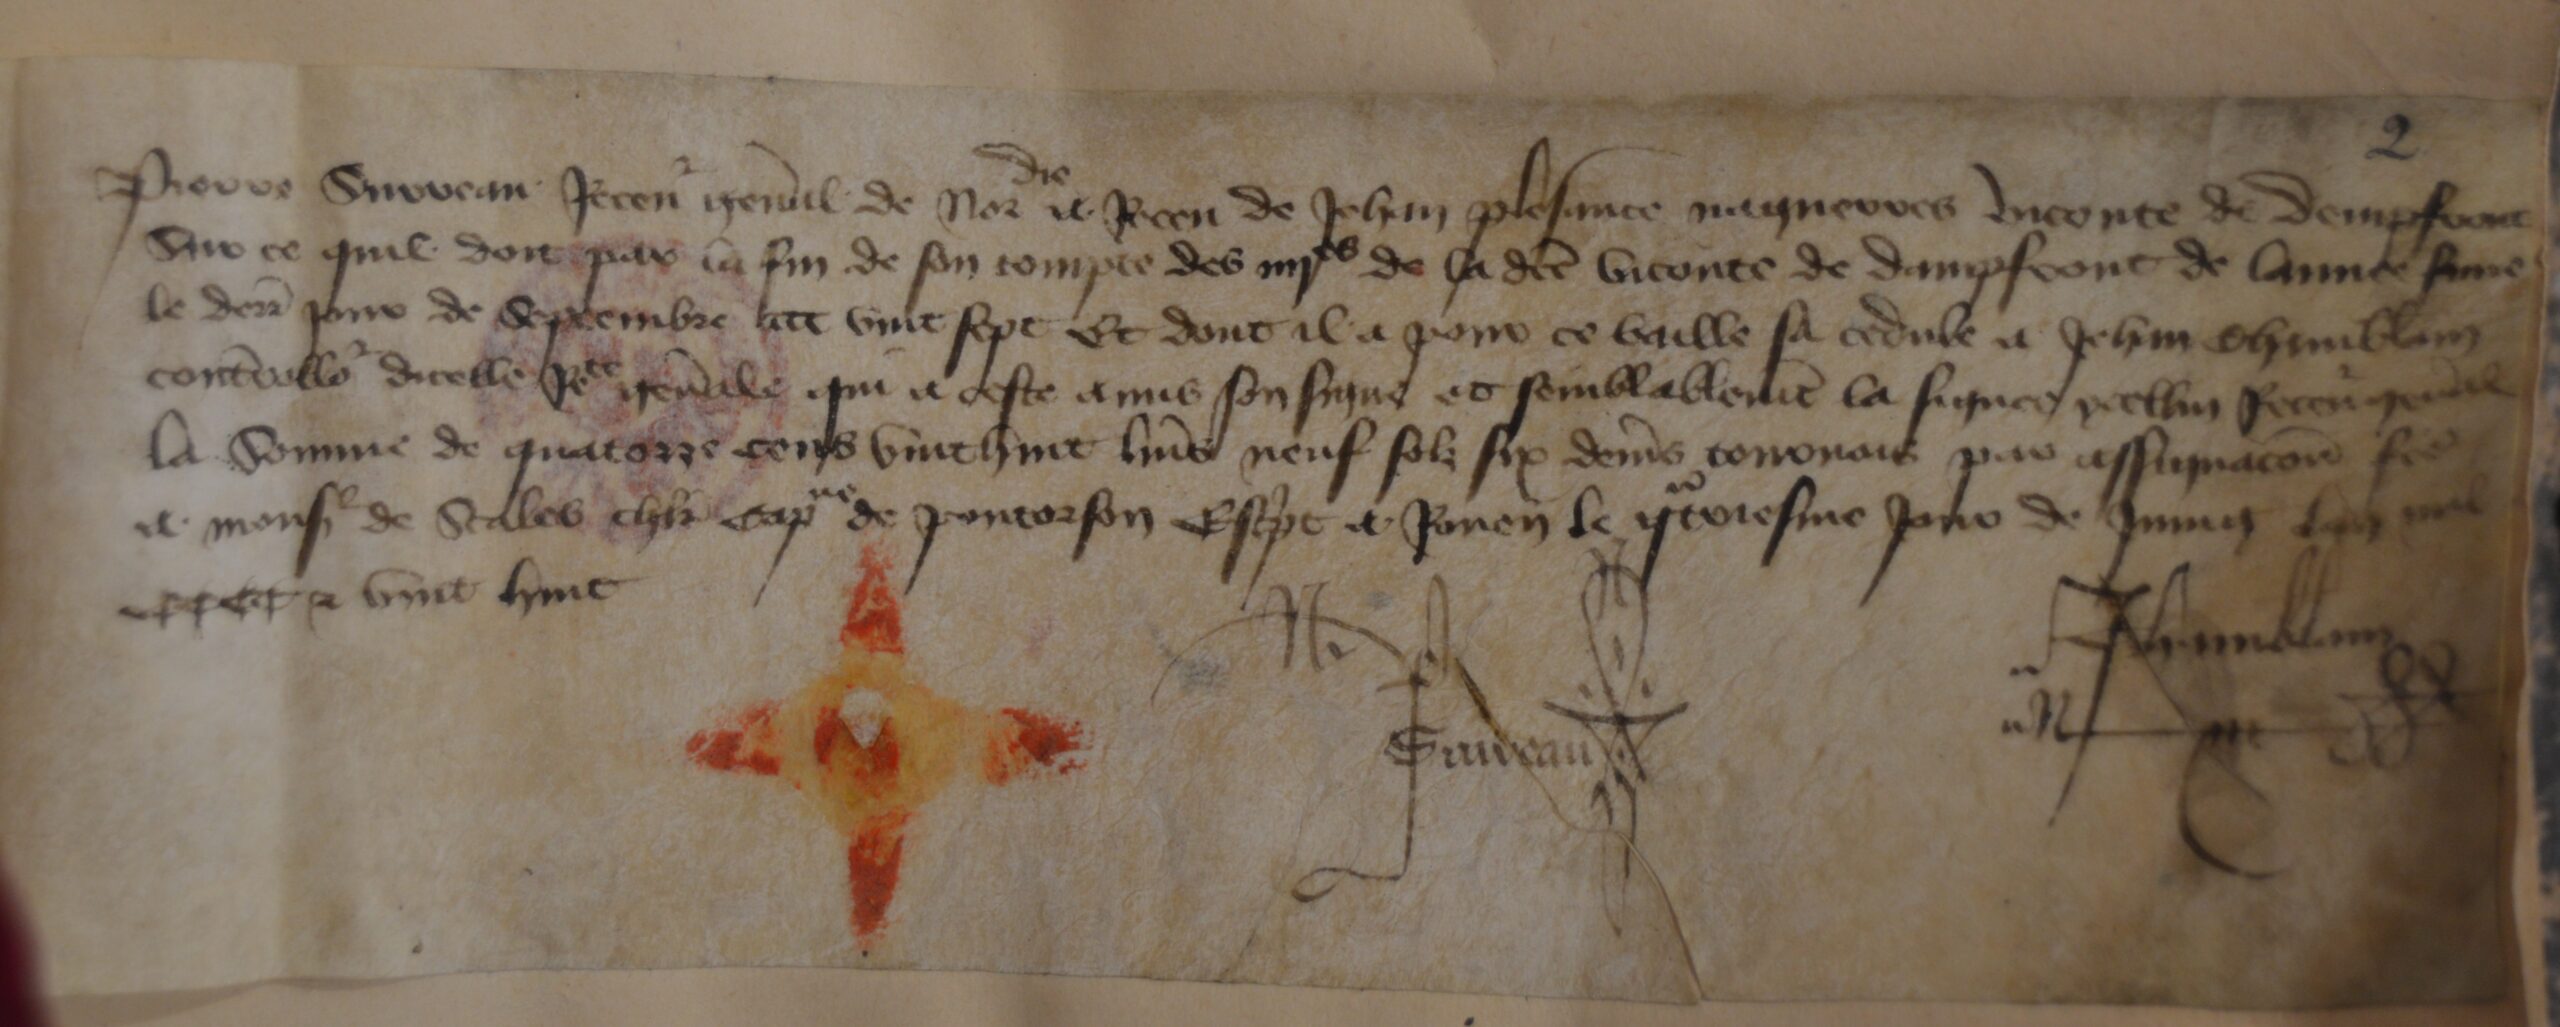 2
Pierre Surreau Receur general de Nordie a Receu de Jehan plesance nagueres viconte de Dempfront
Sur ce quil doit par la fin de son compte des iiijes de la dcte viconte de dampfront de lannee finie
le derr jour de Septembre iiijc vint sept Et dont il a pour ce baille sa cedule a Jehan Chamblain
controllor dicelle Rcte generale qui a ceste a mis son signe et semblablemt la signee ycellui Receur general
la Somme de quatorze cens vinthuit livrs neuf solz six denrs tournois par assignacon fce
a monsr de Scales chlr Cappne de pontorson Escript a Rouen le jour de Juing lan mil
cccc & vint huit
Surreau
Chamblain